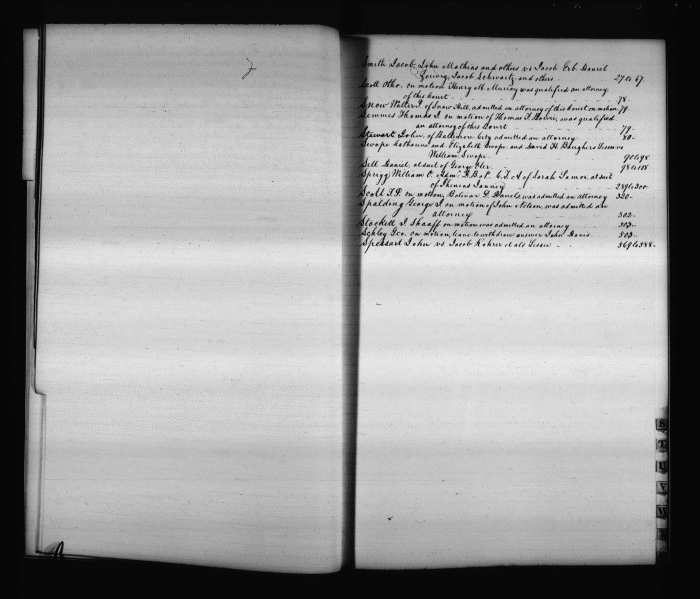 Smith Jacob, John Mathias and others vs Jacob Erb. Daniel
Jacob Schwartz and others 27 to 67
Scott Otho, on motion Henry M. Murray was qualified an attorney
of this court 78-
Snow Walter P. of Snow Hill, admitted an attorney of this Court on motion 79
Semmes Thomas J. on motion of Thomas F. Bowie, was qualified
an attorney of this Court 79-
Stewart John, of Baltimore City admitted an attorney 80-
Swope Catharine and Elizabeth Swope and David H. Baughers Lessee vs
William Swope 90 to 98
Sell Daniel, at suit of George Oler 98 to 118
Sprigg William O. Adm. D.B.N. C.T.A of Sarah Lamar, at suit
of Phineas Janney 239 to 300-
Scott T.P. on motion, Bolivar D. Daniels was admitted an attorney 320-
Spalding George P. on motion of John Nelson, was admitted an
attorney 302-
Stockett J. Shaaff, on motion was admitted an attorney 303-
Schley Geo. on motion, leave to withdraw answer John Davis 303-
Spessart John vs. Jacob Rohrer et als Lessee 369 to 388-
S
T
U
V
W